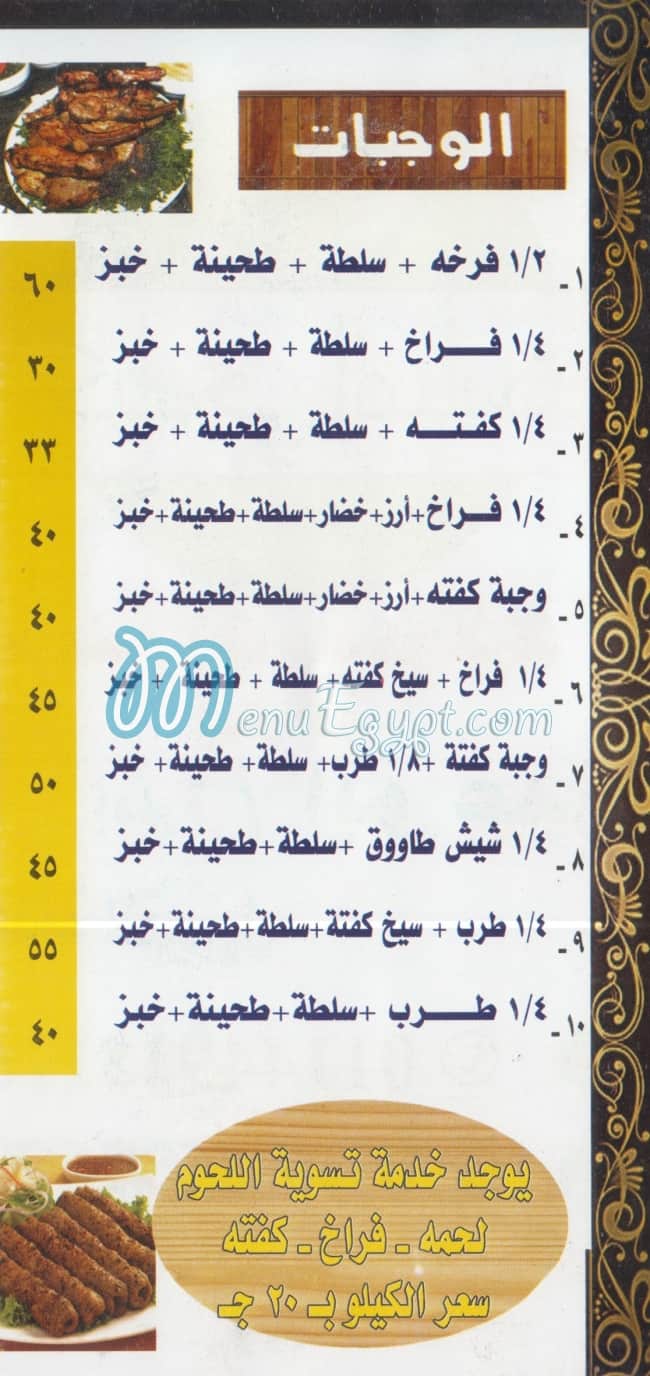 الوجبات
١- ١/٢ فرخه + سلطة + طحينة + خبز ٦٠
٢- ١/٤ فراخ + سلطة + طحينة + خبز ٣٠
٣- ١/٤ كفته + سلطة + طحينة + خبز ٣٣
٤- ١/٤ فراخ+أرز+خضار+سلطة+طحينة+خبز ٤٠
٥- وجبة كفته+أرز+خضار+سلطة+طحينة+خبز ٤٠
٦- ١/٤ فراخ + سيخ كفته+ سلطة + طحينة + خبز ٤٥
MenuEgypt.com
٧- وجبة كفتة +١/٨ طرب+ سلطة+ طحينة+ خبز ٥٠
٨- ١/٤ شيش طاووق +سلطة+طحينة+خبز ٤٥
٩- ١/٤ طرب + سيخ كفتة+سلطة+طحينة+خبز ٥٥
١٠- ١/٤ طرب +سلطة+طحينة+خبز ٤٠
يوجد خدمة تسوية اللحوم
لحمه - فراخ - كفته
سعر الكيلو بـ ٢٠ جـ